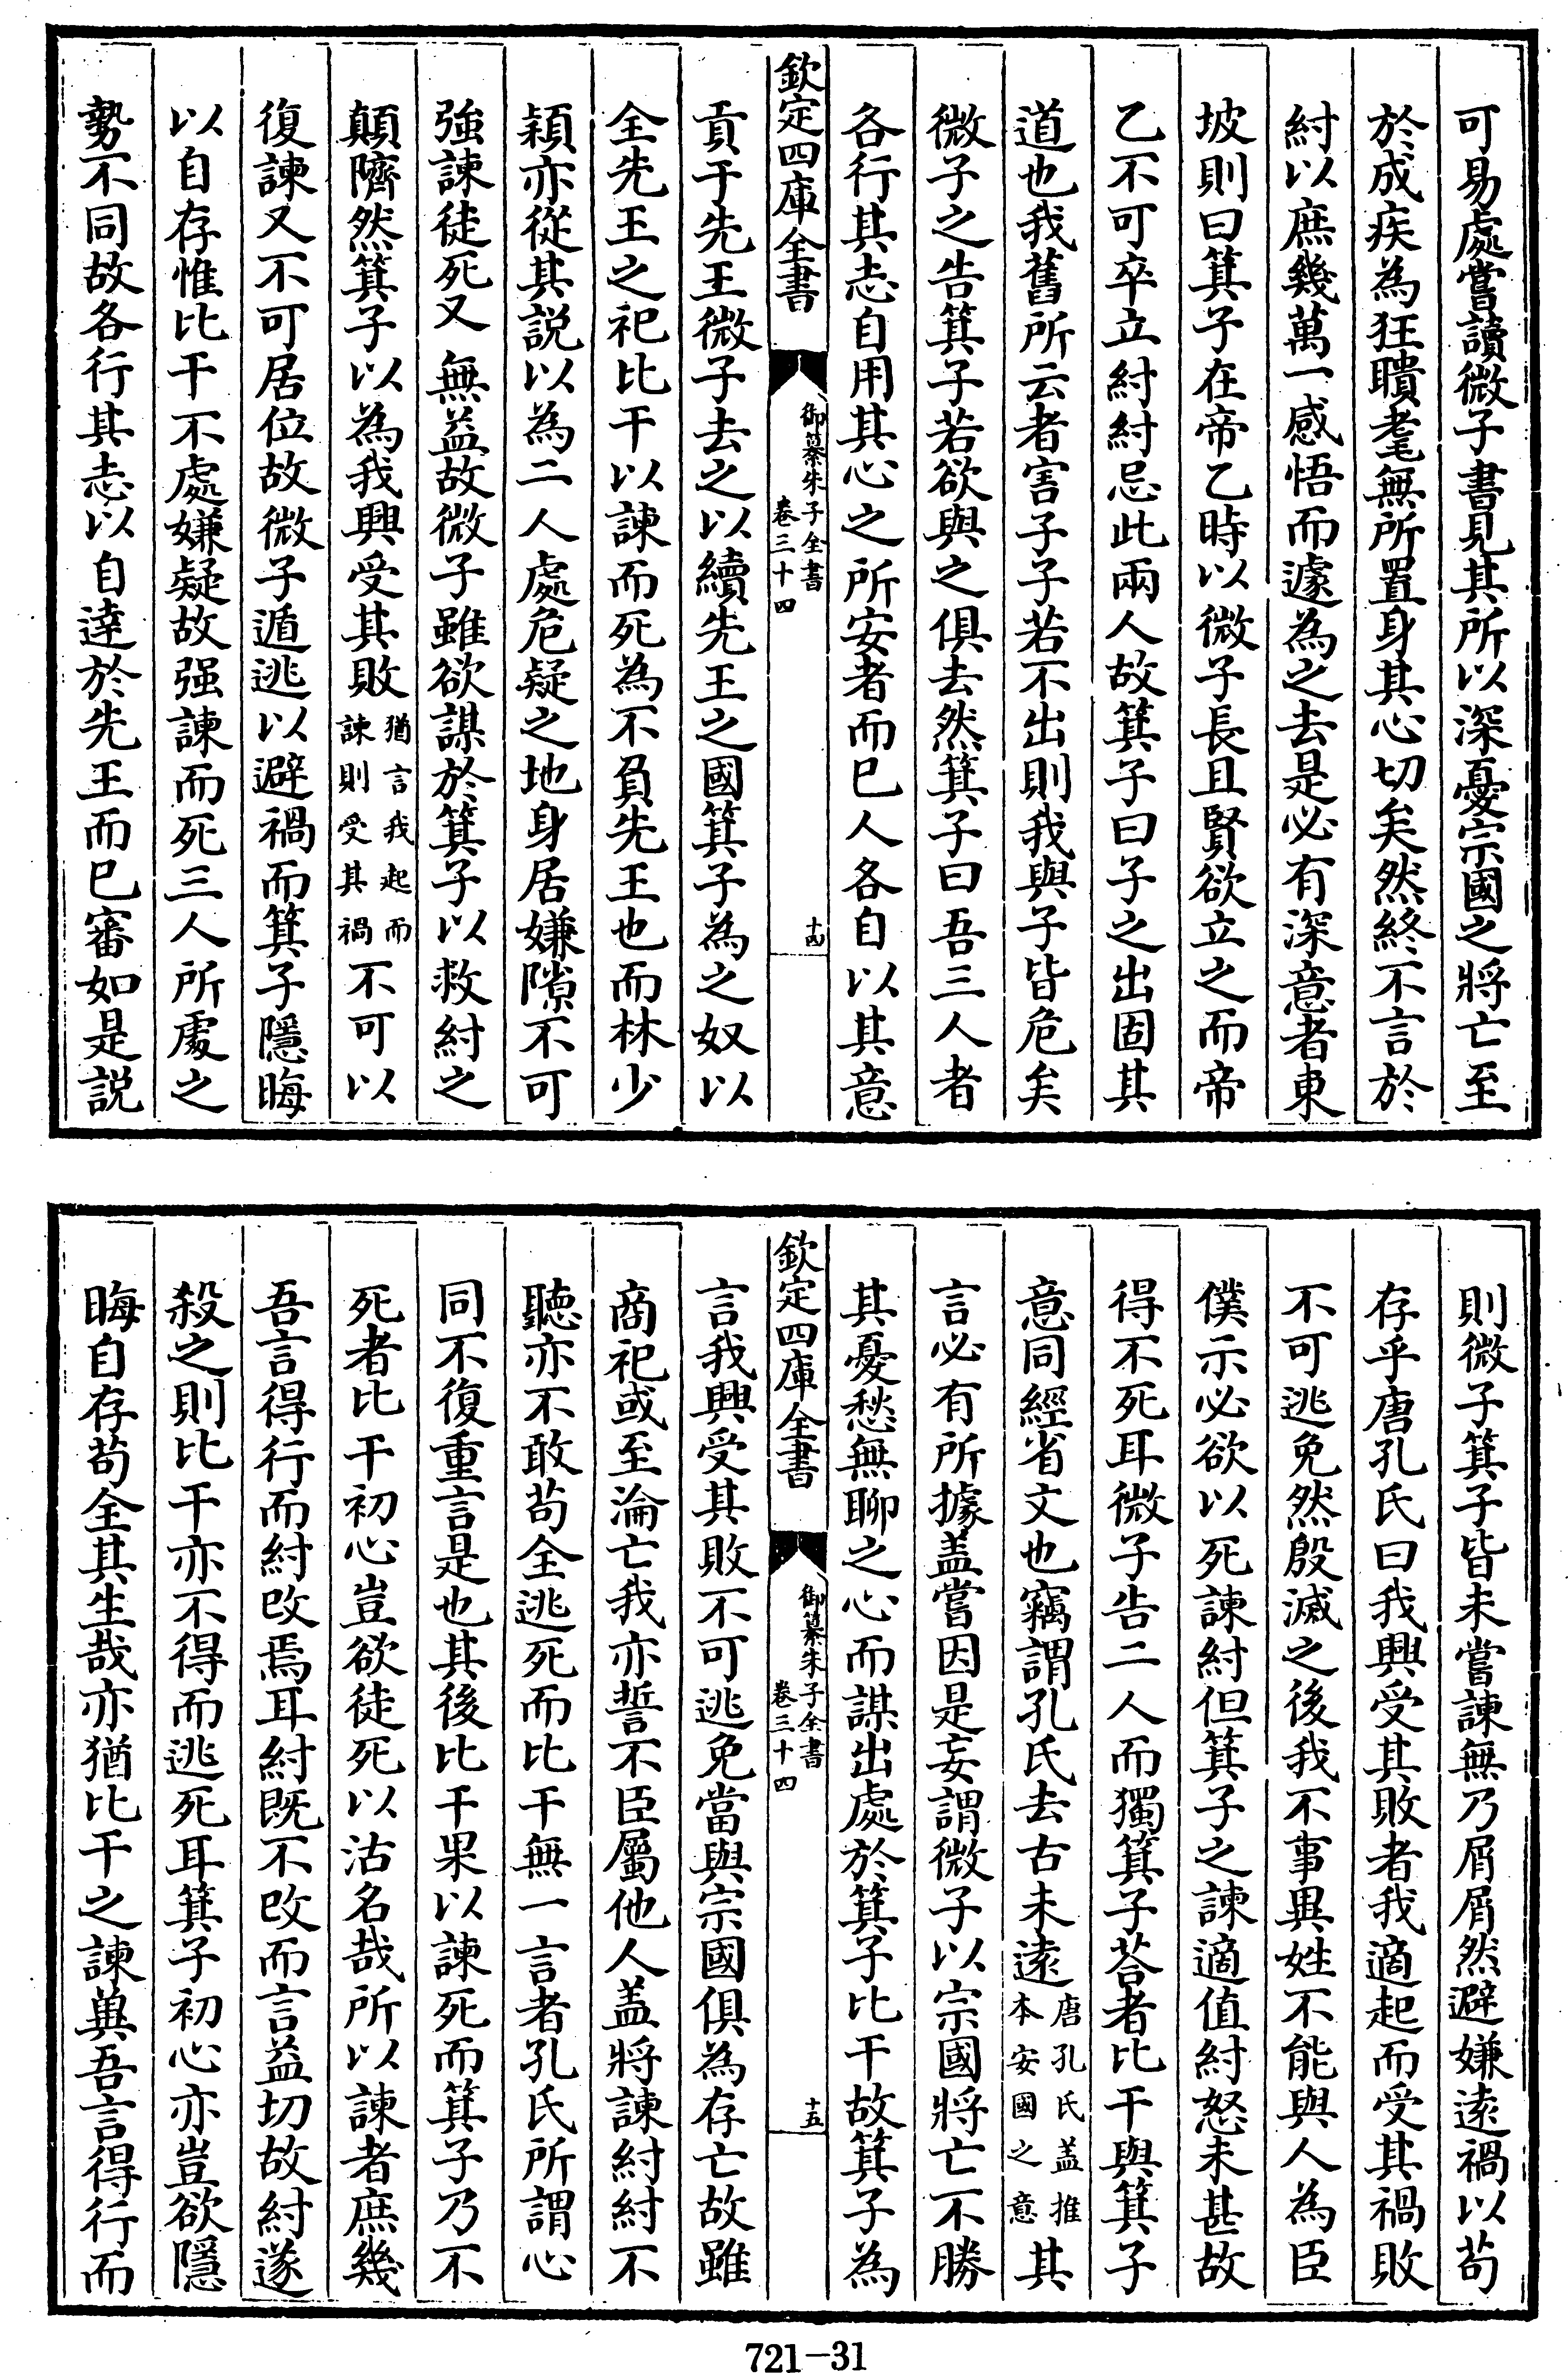 可易處嘗讀微子書見其所以深憂宗國之將亡至
於成疾為狂聵耄無所置身其心切矣然終不言於
紂以庶幾萬一感悟而遽為之去是必有深意者東
坡則曰箕子在帝乙時以微子長且賢欲立之而帝
乙不可卒立紂紂忌此兩人故箕子曰子之出固其
道也我舊所云者害子子若不出則我與子皆危矣
微子之告箕子若欲與之俱去然箕子曰吾三人者
各行其志自用其心之所安者而已人各自以其意
欽定四庫全書
御纂朱子全書
卷三十四
十四
貢于先王微子去之以續先王之國箕子為之奴以
全先王之祀比干以諫而死為不負先王也而林少
穎亦從其説以為二人處危疑之地身居嫌隙不可
強諫徒死又無益故微子雖欲謀於箕子以救紂之
顛隮然箕子以為我興受其敗猶言我起而諫則受其禍不可以
復諫又不可居位故微子遁逃以避禍而箕子隱晦
以自存惟比干不處嫌疑故强諫而死三人所處之
勢不同故各行其志以自達於先王而已審如是説
則微子箕子皆未嘗諫無乃屑屑然避嫌逺禍以苟
存乎唐孔氏曰我興受其敗者我適起而受其禍敗
不可逃免然殷滅之後我不事異姓不能與人為臣
僕示必欲以死諫紂但箕子之諫適值紂怒未甚故
得不死耳微子告二人而獨箕子荅者比干與箕子
意同經省文也竊謂孔氏去古未逺唐孔氏盖推本安國之意其
言必有所據盖嘗因是妄謂微子以宗國將亡不勝
其憂愁無聊之心而謀出處於箕子比干故箕子為
欽定四庫全書
御纂朱子全書
卷三十四
十五
言我興受其敗不可逃免當與宗國俱為存亡故雖
商祀或至淪亡我亦誓不臣屬他人盖將諫紂紂不
聽亦不敢苟全逃死而比干無一言者孔氏所謂心
同不復重言是也其後比干果以諫死而箕子乃不
死者比干初心豈欲徒死以沽名哉所以諫者庶幾
吾言得行而紂改焉耳紂既不改而言益切故紂遂
殺之則比干亦不得而逃死耳箕子初心亦豈欲隱
晦自存苟全其生哉亦猶比干之諫兾吾言得行而
721-31